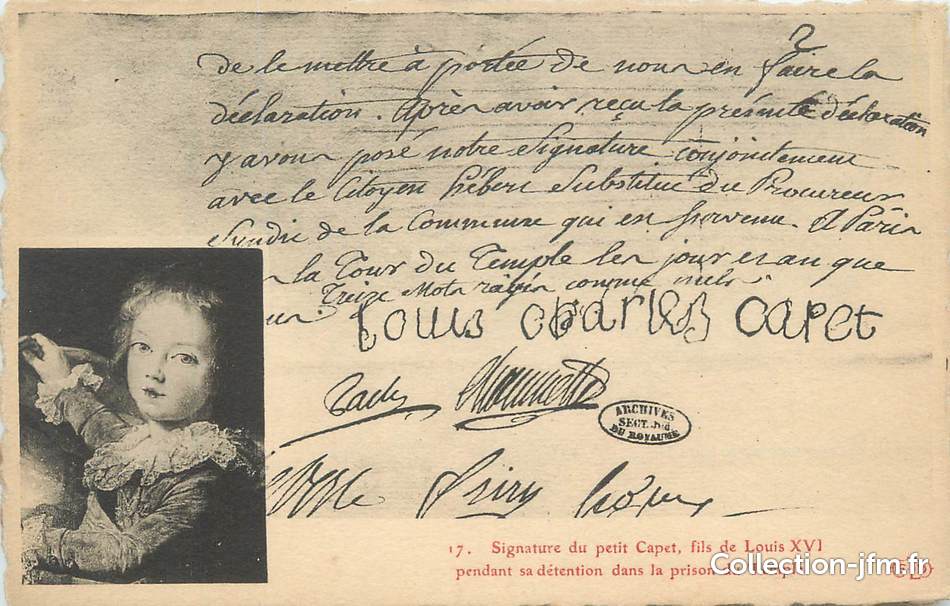 2
de le mettre à portée de nous en faire la
déclaration. Après avoir reçu la présente déclaration
y avons posé notre signature conjointement
avec le Citoyen hébert Substitut du Procureur
Sindic de la Commune qui en survenu. A Paris
la Tour du Temple les jour et an que
Treize mots rayés comme nuls
louis charles capet
ARCHIVES
SECT. Jud
DU ROYAUME
17. Signature du petit Capet, fils de Louis XVI
pendant sa détention dans la prison
Collection-jfm.fr